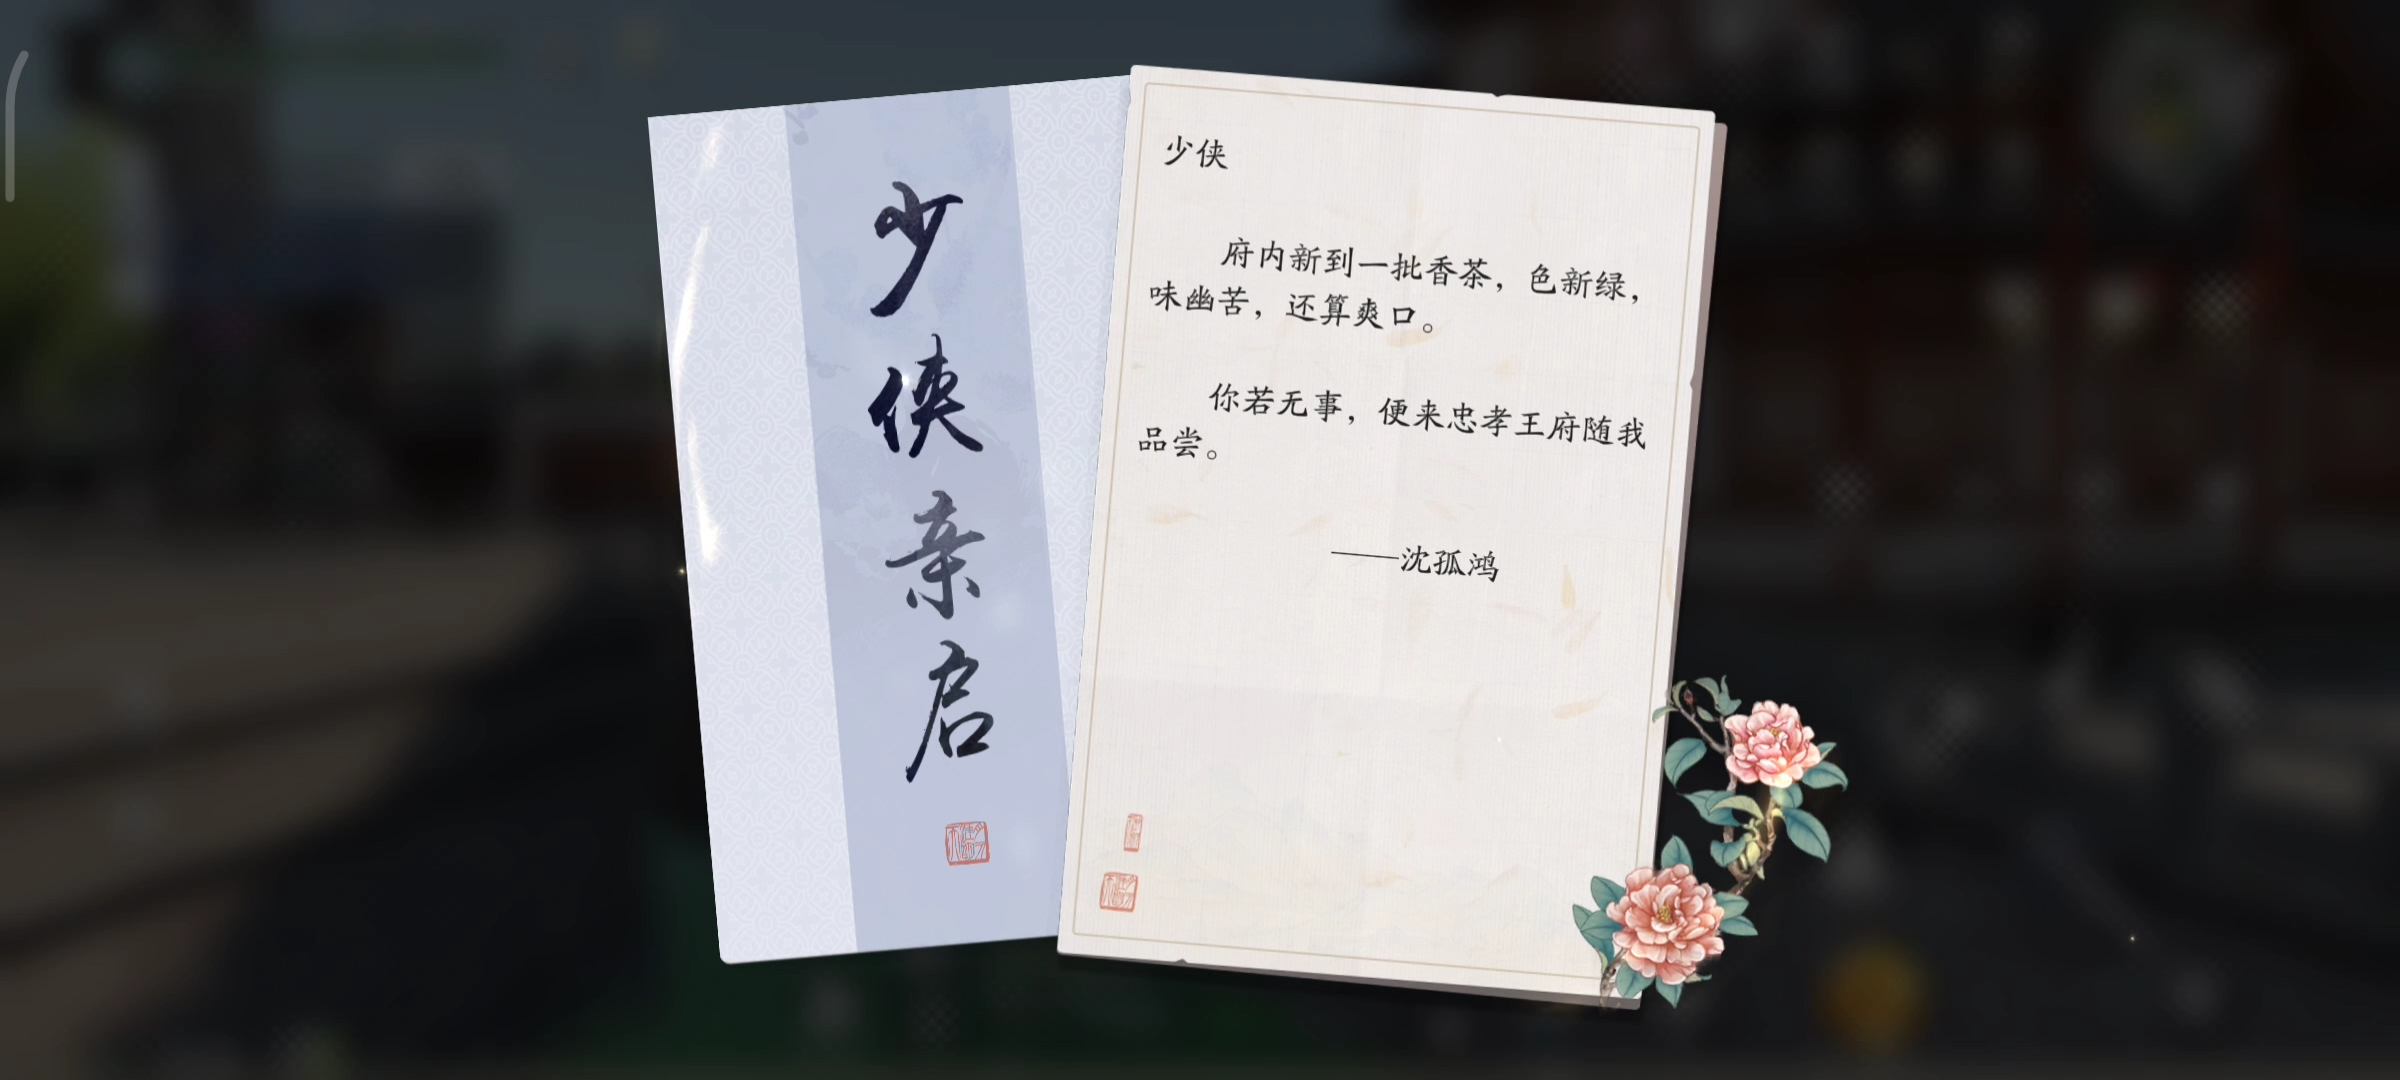 少侠亲启
少侠
府内新到一批香茶，色新绿，
味幽苦，还算爽口。
你若无事，便来忠孝王府随我
品尝。
——沈孤鸿